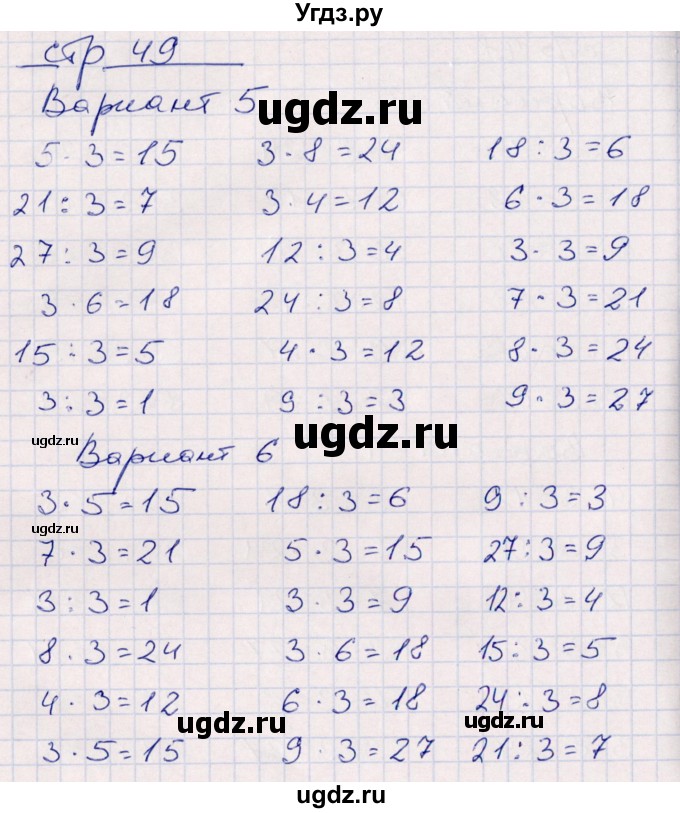 Угдз.ру
стр 49
Вариант 5
ugdz.ru
5 · 3 = 15 3 · 8 = 24 18 : 3 = 6
21 : 3 = 7 3 · 4 = 12 6 · 3 = 18
27 : 3 = 9 12 : 3 = 4 3 · 3 = 9
3 · 6 = 18 24 : 3 = 8 7 · 3 = 21
15 : 3 = 5 4 · 3 = 12 8 · 3 = 24
3 : 3 = 1 9 : 3 = 3 9 · 3 = 27
ugdz.ru
ugdz.ru
Вариант 6
3 · 5 = 15 18 : 3 = 6 9 : 3 = 3
ugdz.ru
7 · 3 = 21 5 · 3 = 15 27 : 3 = 9
3 : 3 = 1 3 · 3 = 9 12 : 3 = 4
8 · 3 = 24 3 · 6 = 18 15 : 3 = 5
4 · 3 = 12 6 · 3 = 18 24 : 3 = 8
ugdz.ru
ugdz.ru
3 · 5 = 15 9 · 3 = 27 21 : 3 = 7
ugdz.ru